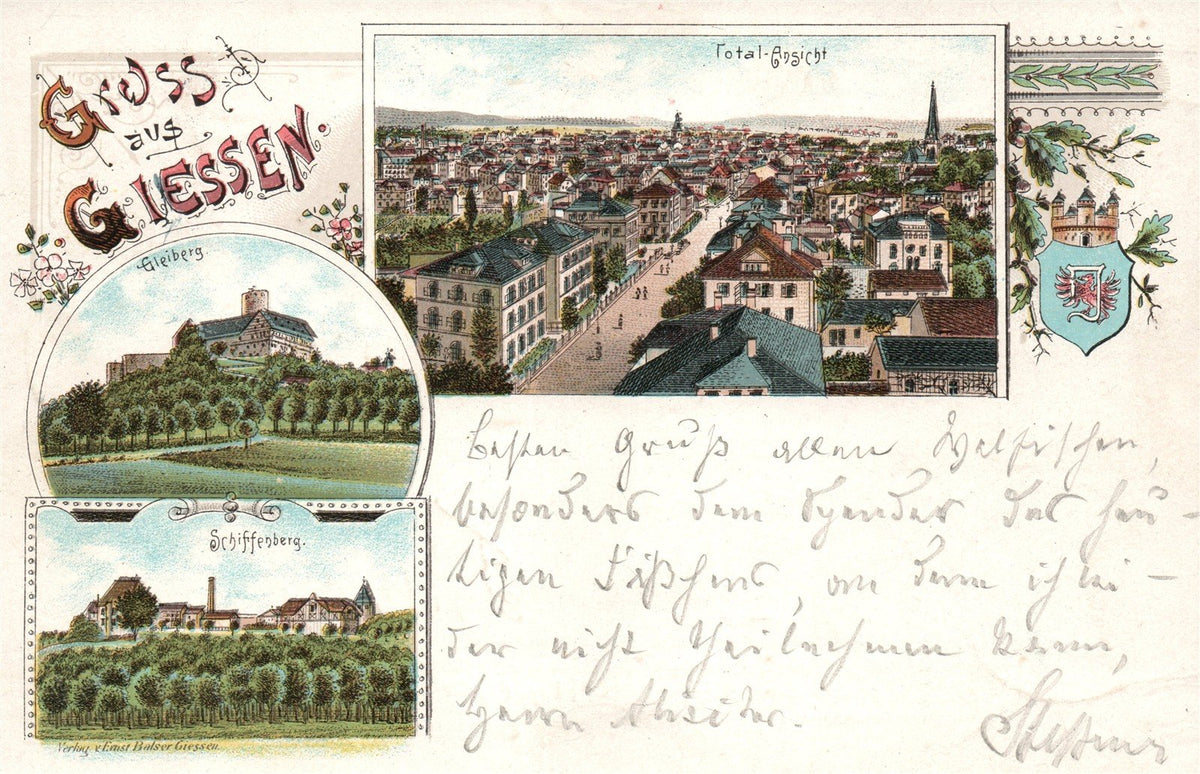 Gruss
aus
Giessen.
Total-Ansicht
Gleiberg.
Schiffenberg.
Verlag v. Ernst Balser Giessen.
Besten Gruß allen Welfischen,
besonders dem Spender des heu-
tigen Fäßchens, an dem ich lei-
der nicht theilnehmen kann,
Herrn